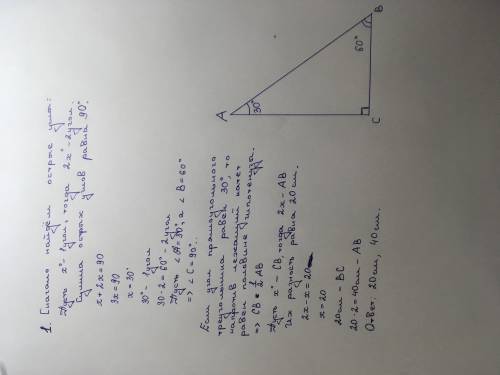 1. Сначала найдём острые углы:
Пусть x° - 1 угол, тогда 2x° - 2 угол.
Сумма острых углов равна 90°.
x + 2x = 90
3x = 90
x = 30°
30° - 1 угол
30 · 2 = 60° - 2 угол
Пусть ∠A = 30°, а ∠B = 60°
=> ∠C = 90°.
Если угол прямоугольного
треугольника равен 30°, то
напротив лежащий катет
равен половине гипотенуза.
=> CB = 1/2 AB
Пусть x° - CB, тогда 2x - AB
Их разность равна 20 см.
2x - x = 20
x = 20
20 см - BC
20 · 2 = 40 см - AB
Ответ: 20 см, 40 см.
A
30°
60°
B
C